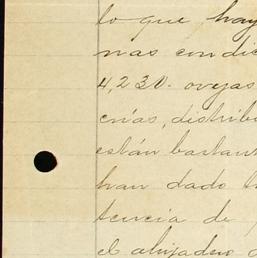 lo que hay
nas condic
4,230. ovejas
crías, distribu
están bastant
han dado t
tencia de
el ahijadero